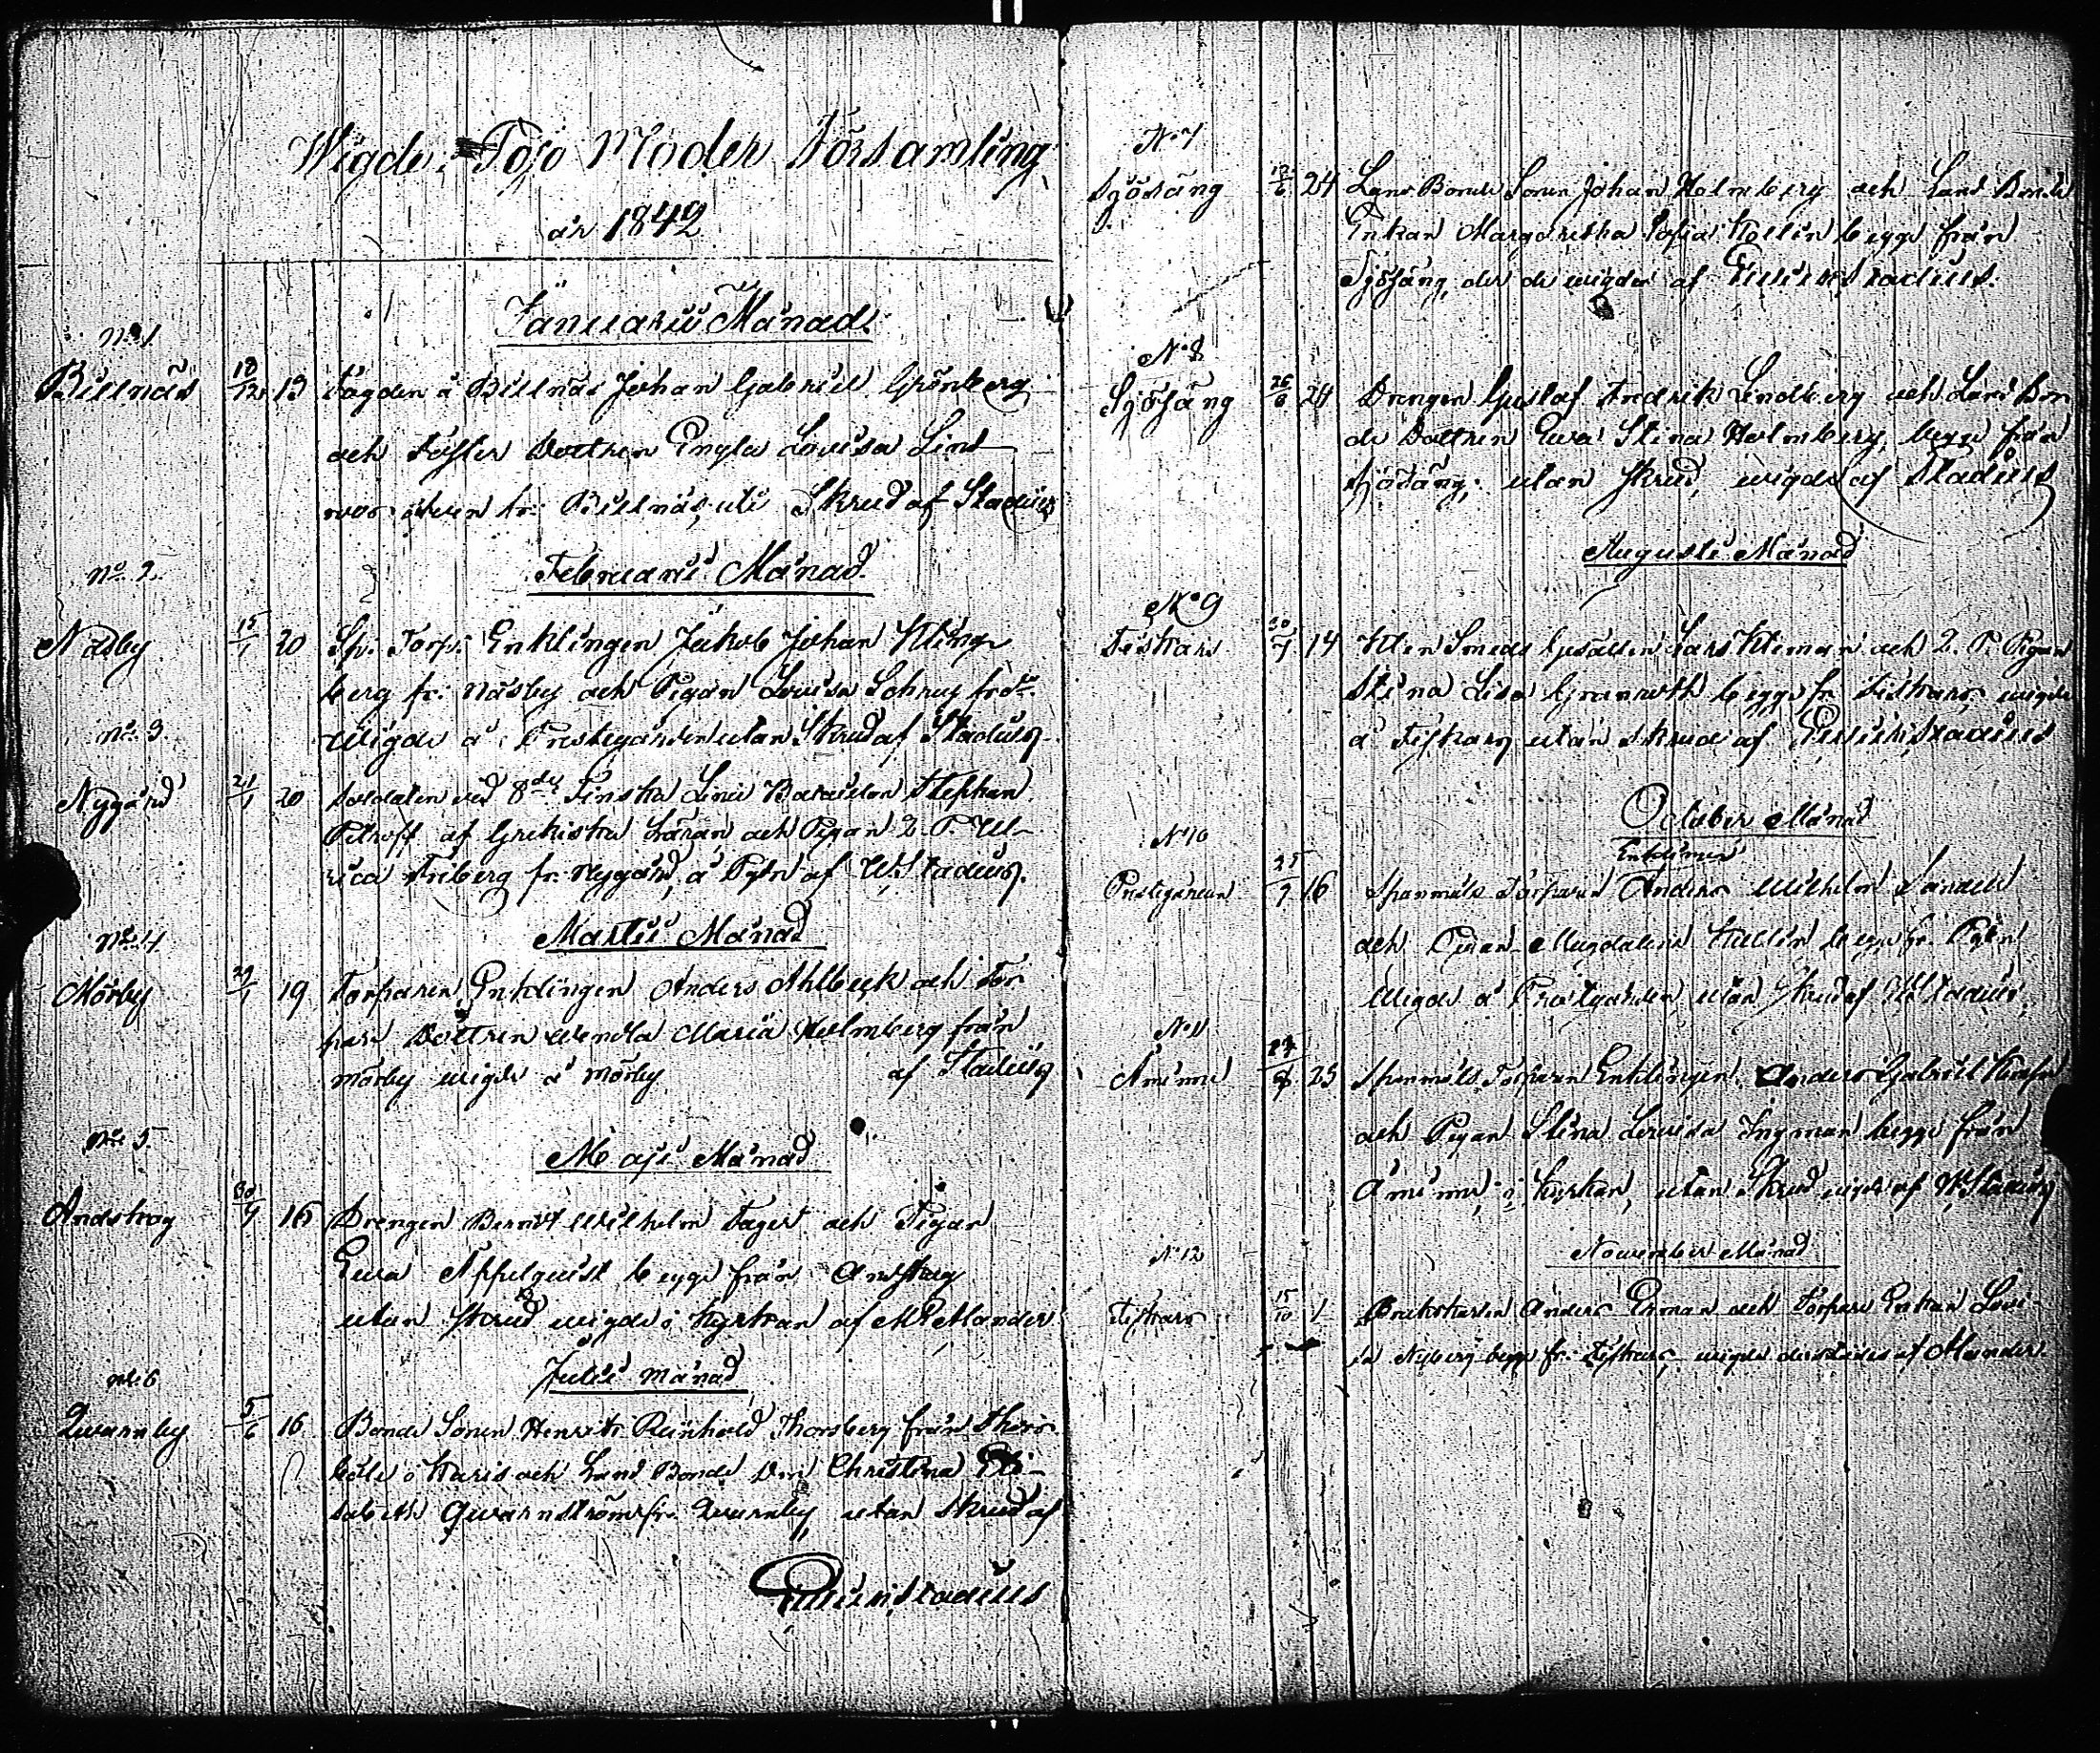 Wigde i Pojo Moder Församling
år 1842
Januarii Månad
No 1.
Billnäs 18/12 13 Fogden å Billnäs Johan Gabriel Grönberg
och Foster Dottren Engla Lovisa Lind
roos äfven fr. Billnäs, uti Skrud af Stadius
Februarii Månad
No 2.
Näsby 15/1 20 Sp. Torp. Enklingen Jakob Johan Kling
berg fr. Näsby och Pigan Lovisa
Wigde å Prestegården utan Skrud af Stadius
No 3
Nygård 21/1 20 Soldaten vid 8de Finska Linie Bataillon Stephan
Petroff af Grekiska Läran och Pigan 2. P. Ul-
rica Friberg fr. Nygård, å af W. Stadius.
Martii Månad
No 4
Mörby 29/1 19 Torparen Enklingen Anders Ahlbeck och Tor
pare Dottren Wendla Maria Holmberg från
Mörby wigde å Mörby af Stadius
Maji Månad
No 5.
Andskog 30/4 16 Drengen Berndt Wilhelm Fager och Pigan
Ewa Appelquist begge från Anskog
utan Skrud wigde i Kyrkan af Molander
Julii Månad
No 6
Qwarnby 5/6 16 Bonde Sonen Henrik Reinhold Thorsberg från Thors
böle i Karis och Land Bonde Dtn Christina Eli-
sabeth Qwarnström fr. Qwarnby utan skrud af
Stadius
No 7
Sjösäng 12/6 24 Land Bonde Sonen Johan Holmberg och Land Bonde
Enkan Margaretha Sofia begge från
Sjösäng, der de wigdes af Stadius.
No 8
Sjösäng 26/6 24 Drengen Gustaf Fredrik Lindberg och Land Bon
de Dottren Ewa Stina Holmberg, begge från
Sjösäng, utan Skrud, wigde af Stadius
Augusti Månad
No 9
Fiskars 10/7 14 Klen Smeds Gesällen Lars Kleman och 2. P. Pigan
Stina Lisa Granroth begge fr. Fiskars, wigde
å Fiskars utan skrud af Stadius
October Månad
Enklingen
No 10
Prestegården 25/9 16 Spanmåls Torparen Anders Wilhelm
och Pigan Magdalena begge fr.
Wigde å Prestgården, utan Skrud af W. Stadius
No 11
Åminne 23 Spanmåls Torparen Enklingen Anders Gabriel
och Pigan Stina Lovisa Ingman begge från
Åminne, i Kyrkan, utan Skrud wigde af W. Stadius
November Månad
No 12
Fiskars 15/10 1 Anders Erman och Torpare Enkan Lovi-
sa Nyberg begge fr. Fiskars, wigde derstädes af Molander.